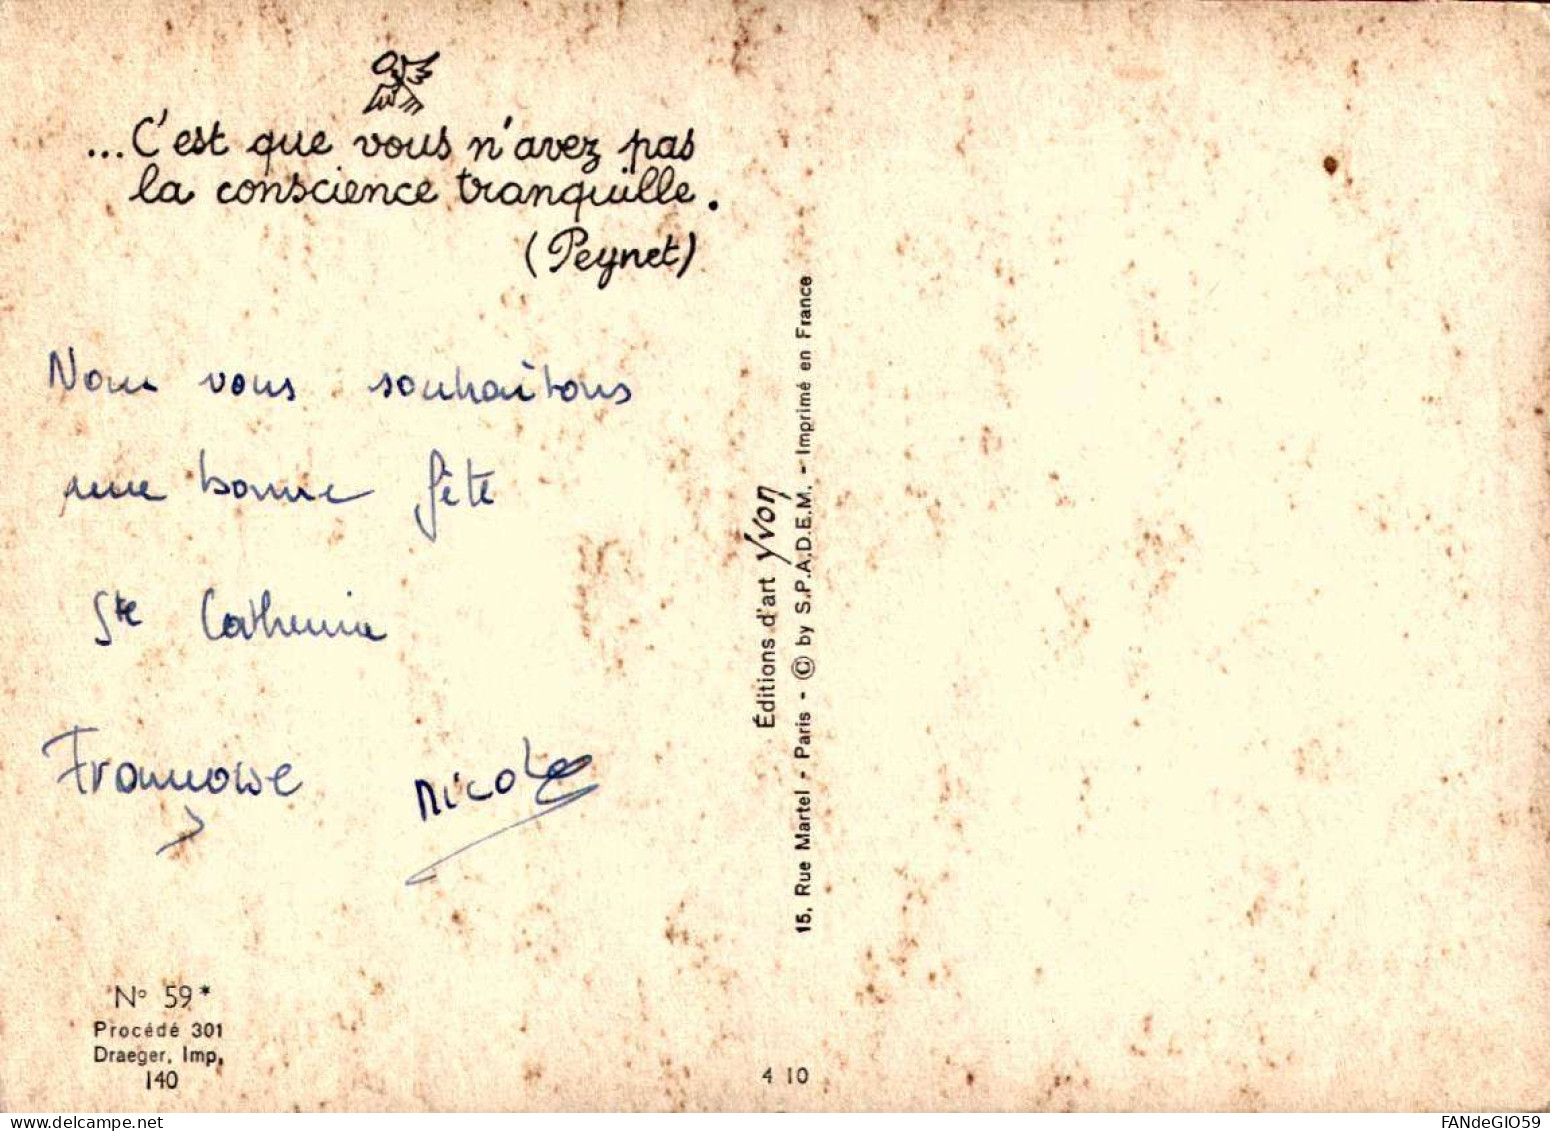 ...C'est que vous n'avez pas
la conscience tranquille.
(Peynet)
Nous vous souhaitons
une bonne fête
Ste Catherine
Françoise
Nicole
N° 59*
Procédé 301
Draeger, Imp,
140
Éditions d'art Yvon
15, Rue Martel - Paris - © by S.P.A.D.E.M. - Imprimé en France
4 10
delcampe.net
FANdeGIO59